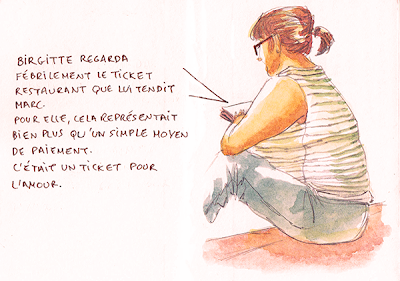 BIRGITTE REGARDA
FÉBRILEMENT LE TICKET
RESTAURANT QUE LUI TENDIT
MARC.
POUR ELLE, CELA REPRÉSENTAIT
BIEN PLUS QU'UN SIMPLE MOYEN
DE PAIEMENT.
C'ÉTAIT UN TICKET POUR
L'AMOUR.